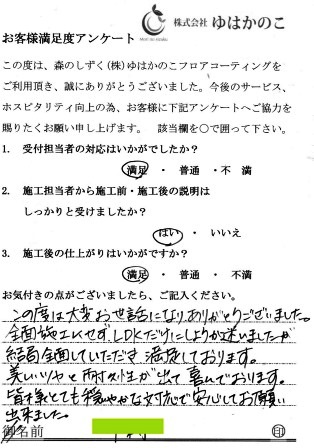 株式会社 ゆはかのこ
お客様満足度アンケート
この度は、森のしずく(株)ゆはかのこフロアコーティングを
ご利用頂き、誠にありがとうございました。今後のサービス、
ホスピタリティ向上の為、お客様に下記アンケートへご協力を
賜りたくお願い申し上げます。 該当欄を○で囲って下さい。
1. 受付担当者の対応はいかがでしたか?
満足 ・ 普通 ・不 満
2. 施工担当者から施工前・施工後の説明は
しっかりと受けましたか?
はい ・ いいえ
3. 施工後の仕上がりはいかがですか?
満足 ・ 普通 ・ 不満
お気付きの点がございましたら、ご記入ください。
この度は大変お世話になりありがとうございました。
全面施工にせず、LDKだけにしようか迷いましたが
結局全面していただき満足しております。
美しいツヤと耐久性が出て喜んでおります。
皆様とても穏やかな対応で安心してお願い
出来ました。
御名前 印